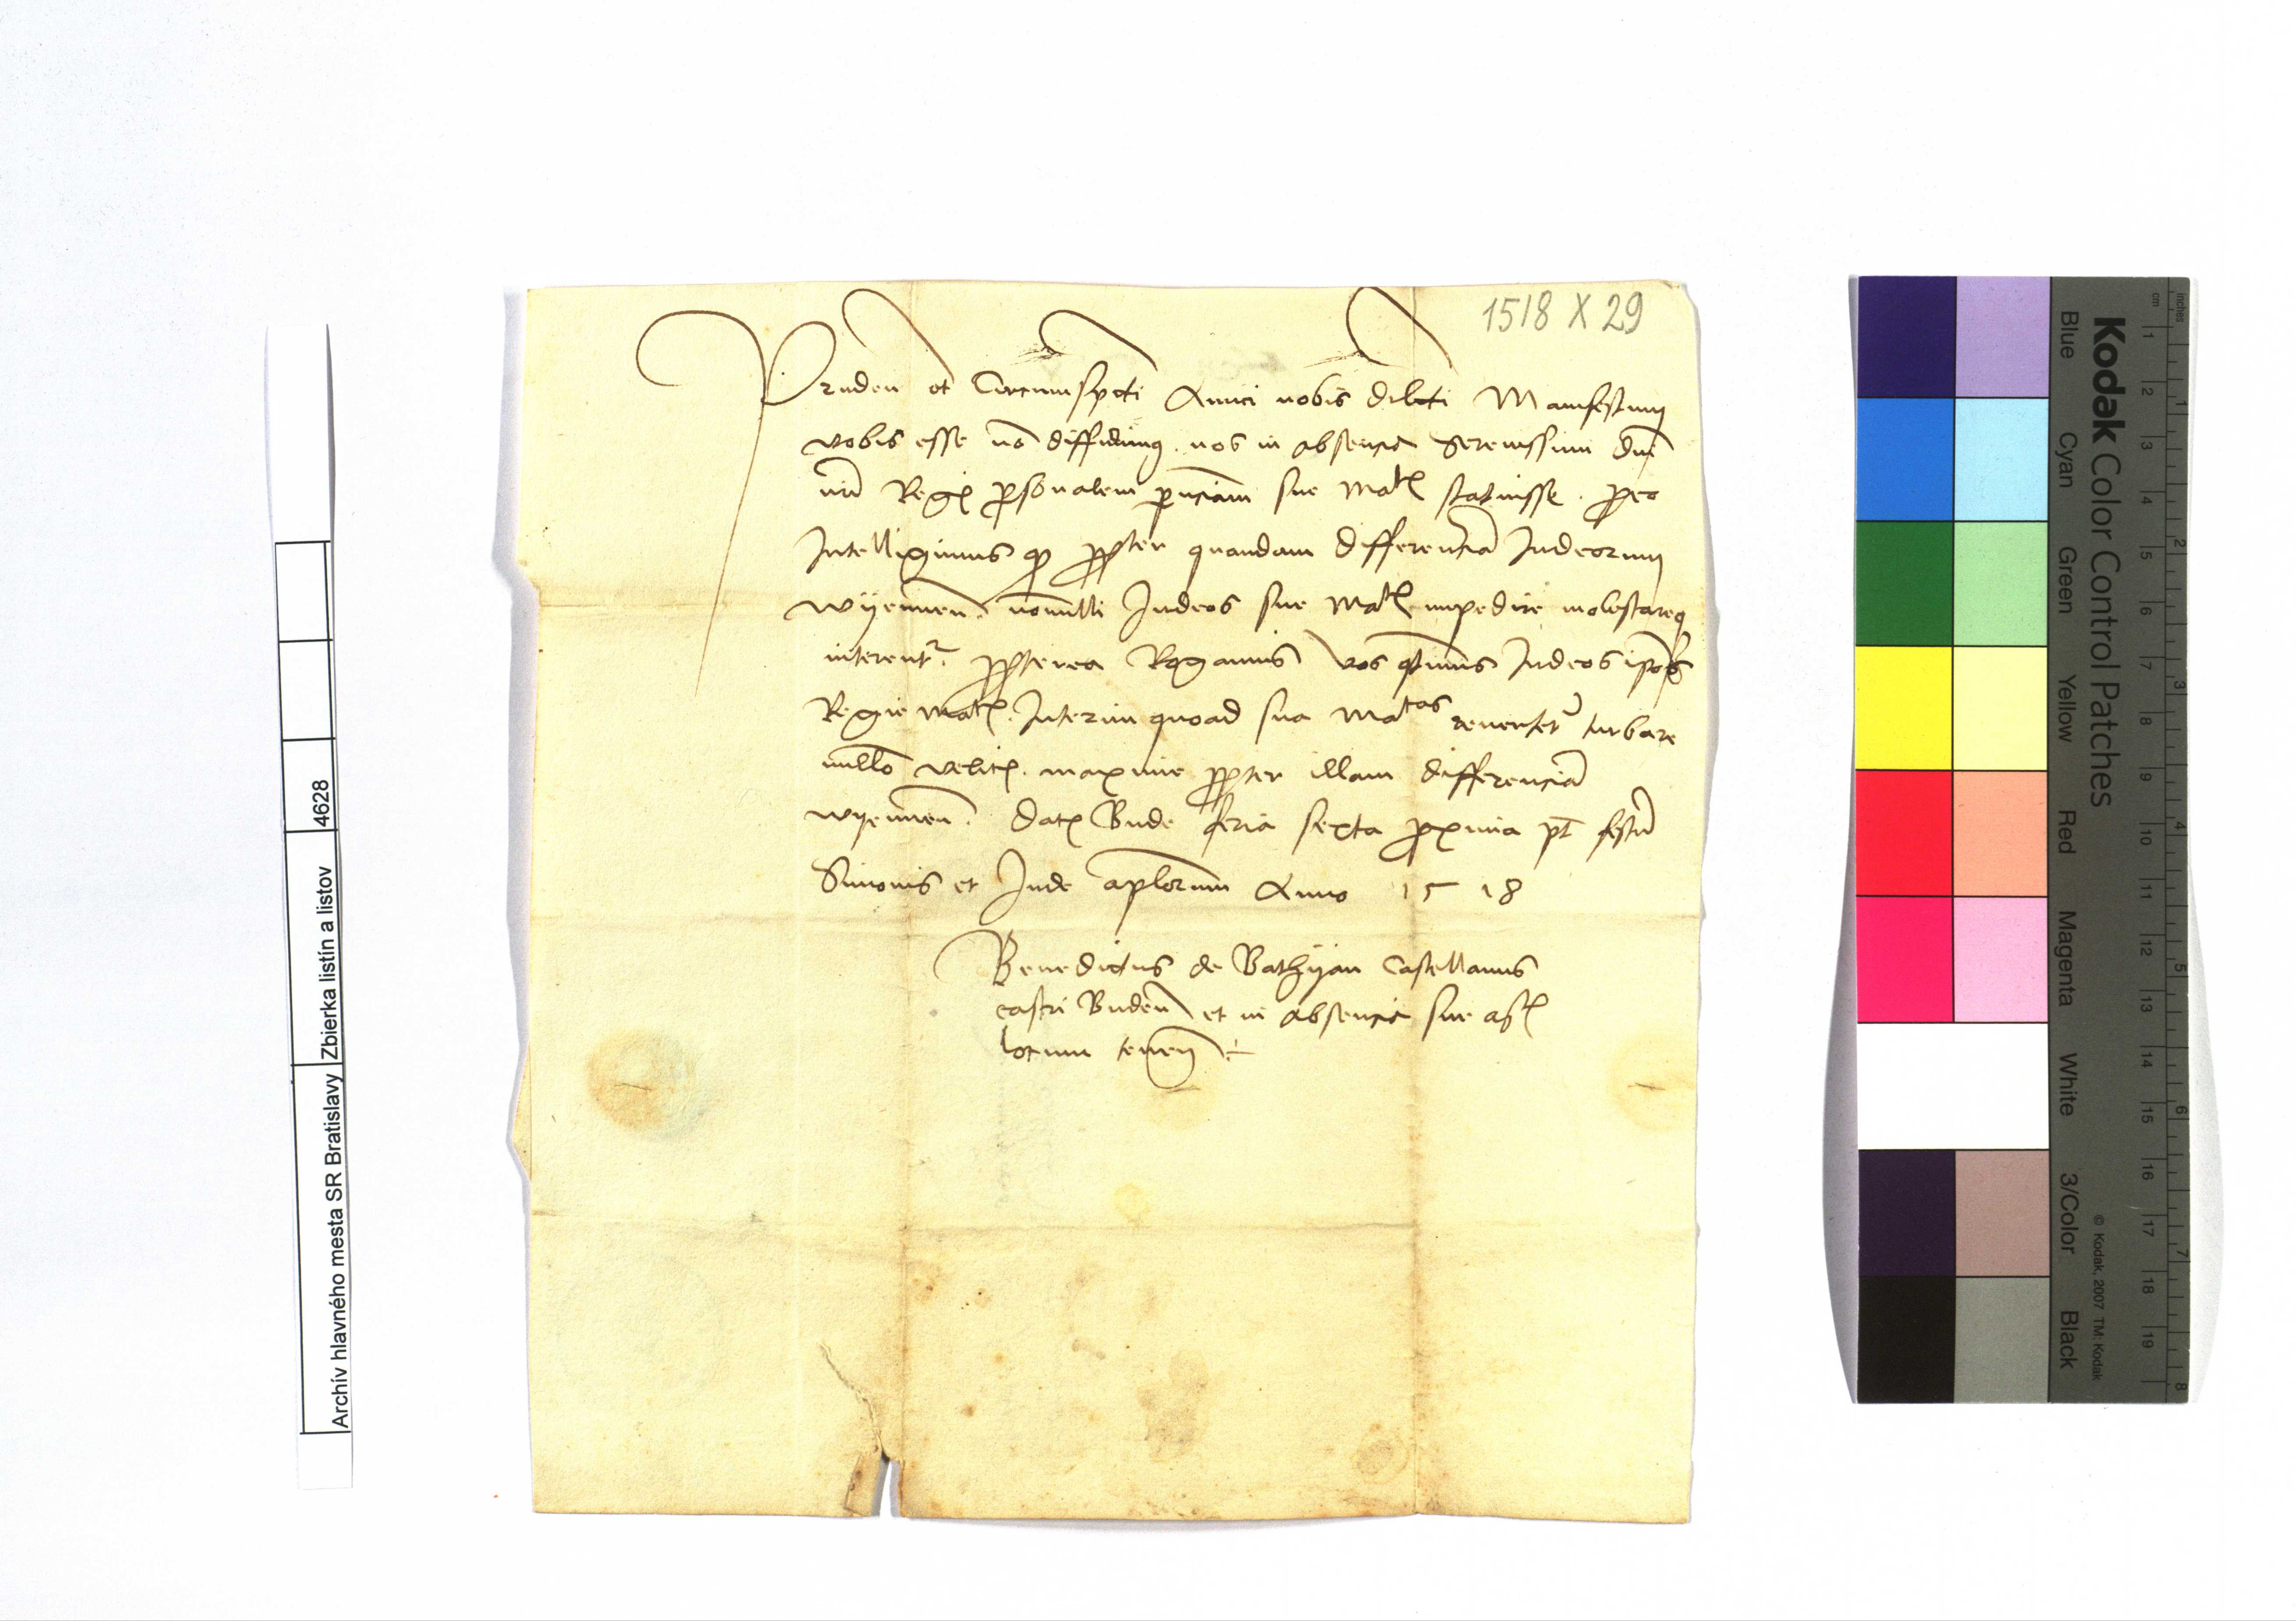 1518 X 29
Pruden et Circumspecti Amici nobis dilecti Manifestum
vobis esse nō diffidimus. nos in absencia Serenissimi dnī
nrī Regis personalem pnciam sue Matis statuisse. pro eo
Intelligimus qp propter quandam differenciā Judeorum
wyennen. nonnulli Judeos sue Matis impedire molestareq
niterentr. propterea Rogamus vos qtinus Judeos ipsos
Regie Matis. Interim quoad sua Matas revertetr turbare
nullo velitis. maxime propter illam differenciā
wyennen. Datis Bude feria sexta proxima pt festū
Simonis et Jude aplorum Anno 1518
Benedictus de Bathyan Castellanus
castri Buden et in absencia sue
locum tenen
Archív hlavného mesta SR Bratislavy Zbierka listín a listov 4628
Kodak Color Control Patches
Blue Cyan Green Yellow Red Magenta White 3/Color Black
© Kodak, 2007 TM: Kodak
inches 1 2 3 4 5 6 7 8
cm 1 2 3 4 5 6 7 8 9 10 11 12 13 14 15 16 17 18 19